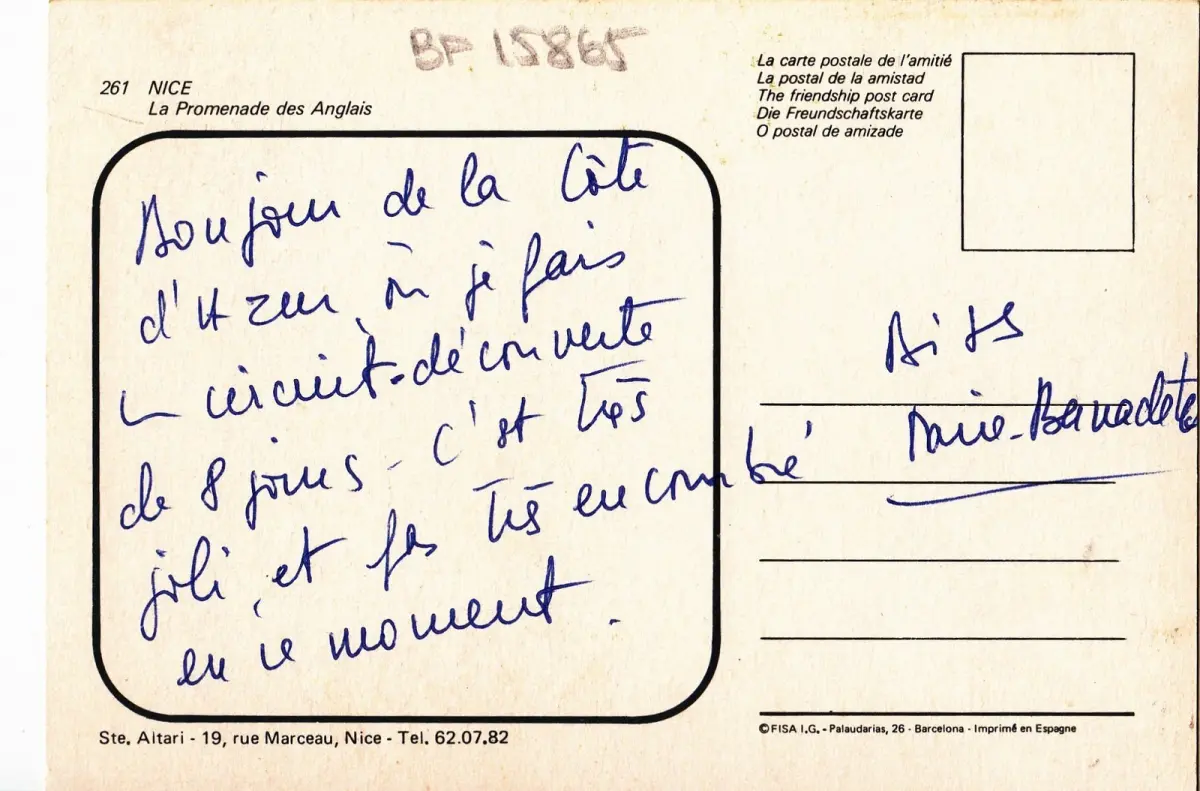 BF 15865
261 NICE
La Promenade des Anglais
La carte postale de l'amitié
La postal de la amistad
The friendship post card
Die Freundschaftskarte
O postal de amizade
Bonjour de la Côte
d'Azur, où je fais
un circuit-découverte
de 8 jours - C'est très
joli, et pas très encombré
en ce moment.
Bises
Marie-Bernadette
Ste. Altari - 19, rue Marceau, Nice - Tel. 62.07.82
©FISA I.G. - Palaudarias, 26 - Barcelona - Imprimé en Espagne